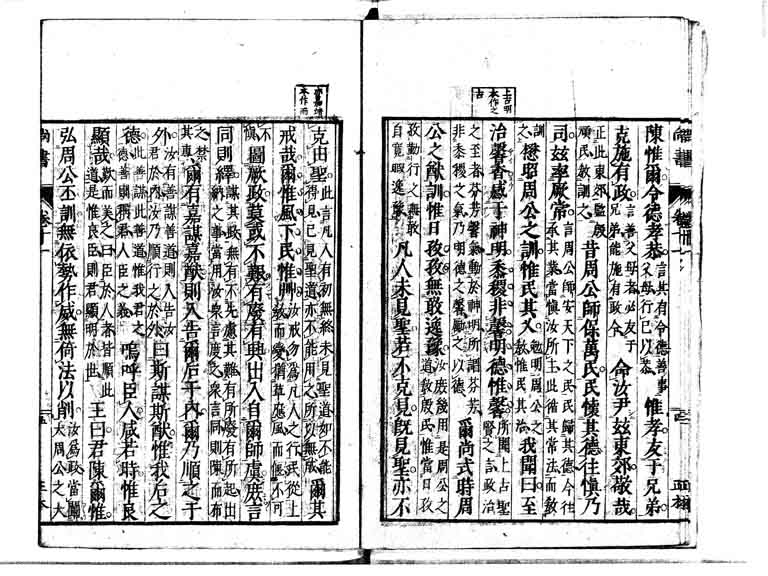 上古明
本作之
古
陳惟爾令德孝恭言其有令德善事父母行己以恭惟孝友于兄弟
克施有政言善父母者必友于兄弟能施有政令命汝尹茲東郊敬哉
正此東郊監殷頑民教訓之昔周公師保萬民民懷其德往慎乃
司茲率厥常言周公師安天下之民民歸其德今往承其業當慎汝所主此循其常法而教
訓之懋昭周公之訓惟民其乂勉明周公之教惟民其治我聞曰至
治馨香感于神明黍稷非馨明德惟馨所聞上古聖賢之言政治
之至者芬芳馨氣動於神明所謂芬芳非黍稷之氣乃明德之馨勵之以德爾尚式時周
公之猷訓惟日孜孜無敢逸豫汝庶幾用是周公之道教殷民惟當日孜
孜勤行之無敢自寬暇逸豫凡人未見聖若不克見既見聖亦不
克由聖此言凡人有初無終未見聖道如不能得見已見聖道亦不能用之所以無成爾其
戒哉爾惟風下民惟艸汝戒勿為凡人之行民從上教而變猶草應風而偃
不圖厥政莫或不艱有廢有興出入自爾師虞庶言
同則繹謀其政無有不先慮其難有所廢有所起出納之事當用汝眾言度之眾言同則陳而布
之禁其專爾有嘉謀嘉猷則入告爾后于內爾乃順之于
外汝有善謀善道則入告汝君於內汝乃順行之於外曰斯謀斯猷惟我后之
德此善謀此善道惟我君之德善則稱君人臣之義嗚呼臣人咸若時惟良
顯哉歎而美之曰臣於人者皆順此道是惟良臣則君顯明於世王曰君陳爾惟
弘周公丕訓無依勢作威無倚法以削汝為政當闡大周公之大
尚書
卷十一